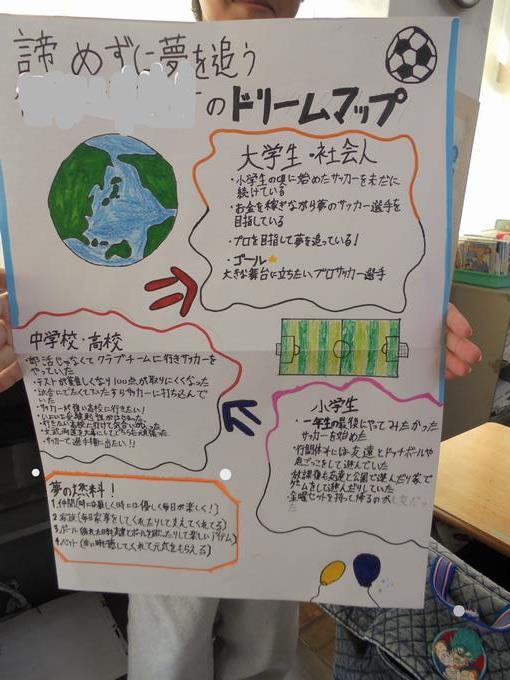 諦めずに夢を追う
のドリームマップ
大学生・社会人
・小学生の頃に始めたサッカーを未だに
続けている
・お金を稼ぎながら夢のサッカー選手を
目指している
・プロを目指して夢を追っている！
・ゴール
大きな舞台に立ちたいプロサッカー選手
中学校・高校
・部活じゃなくてクラブチームに行きサッカーを
やっていた
・テストが難しくなり100点が取りにくくなった
・試合にでたくていたすらサッカーに打ち込んで
いた
・サッカーが強い高校に行きたい！
・行きたい高校に行けて気合いが入った
・サッカーで選手権に出たい!!
小学生
・一年生の最後にやってみたかった
サッカーを始めた
・行間休みには友達とドッチボールや
鬼ごっこをして遊んでいた
・放課後も友達と公園で遊んだり家で
ゲームをして遊んだりしていた
・金曜セットを持って帰るのが
夢の燃料！
1.仲間(時には厳しく時には優しく毎日が楽しく!)
2.家族(毎日家事をしてくれたりして支えてくれてる)
3.ボール
4.ペット